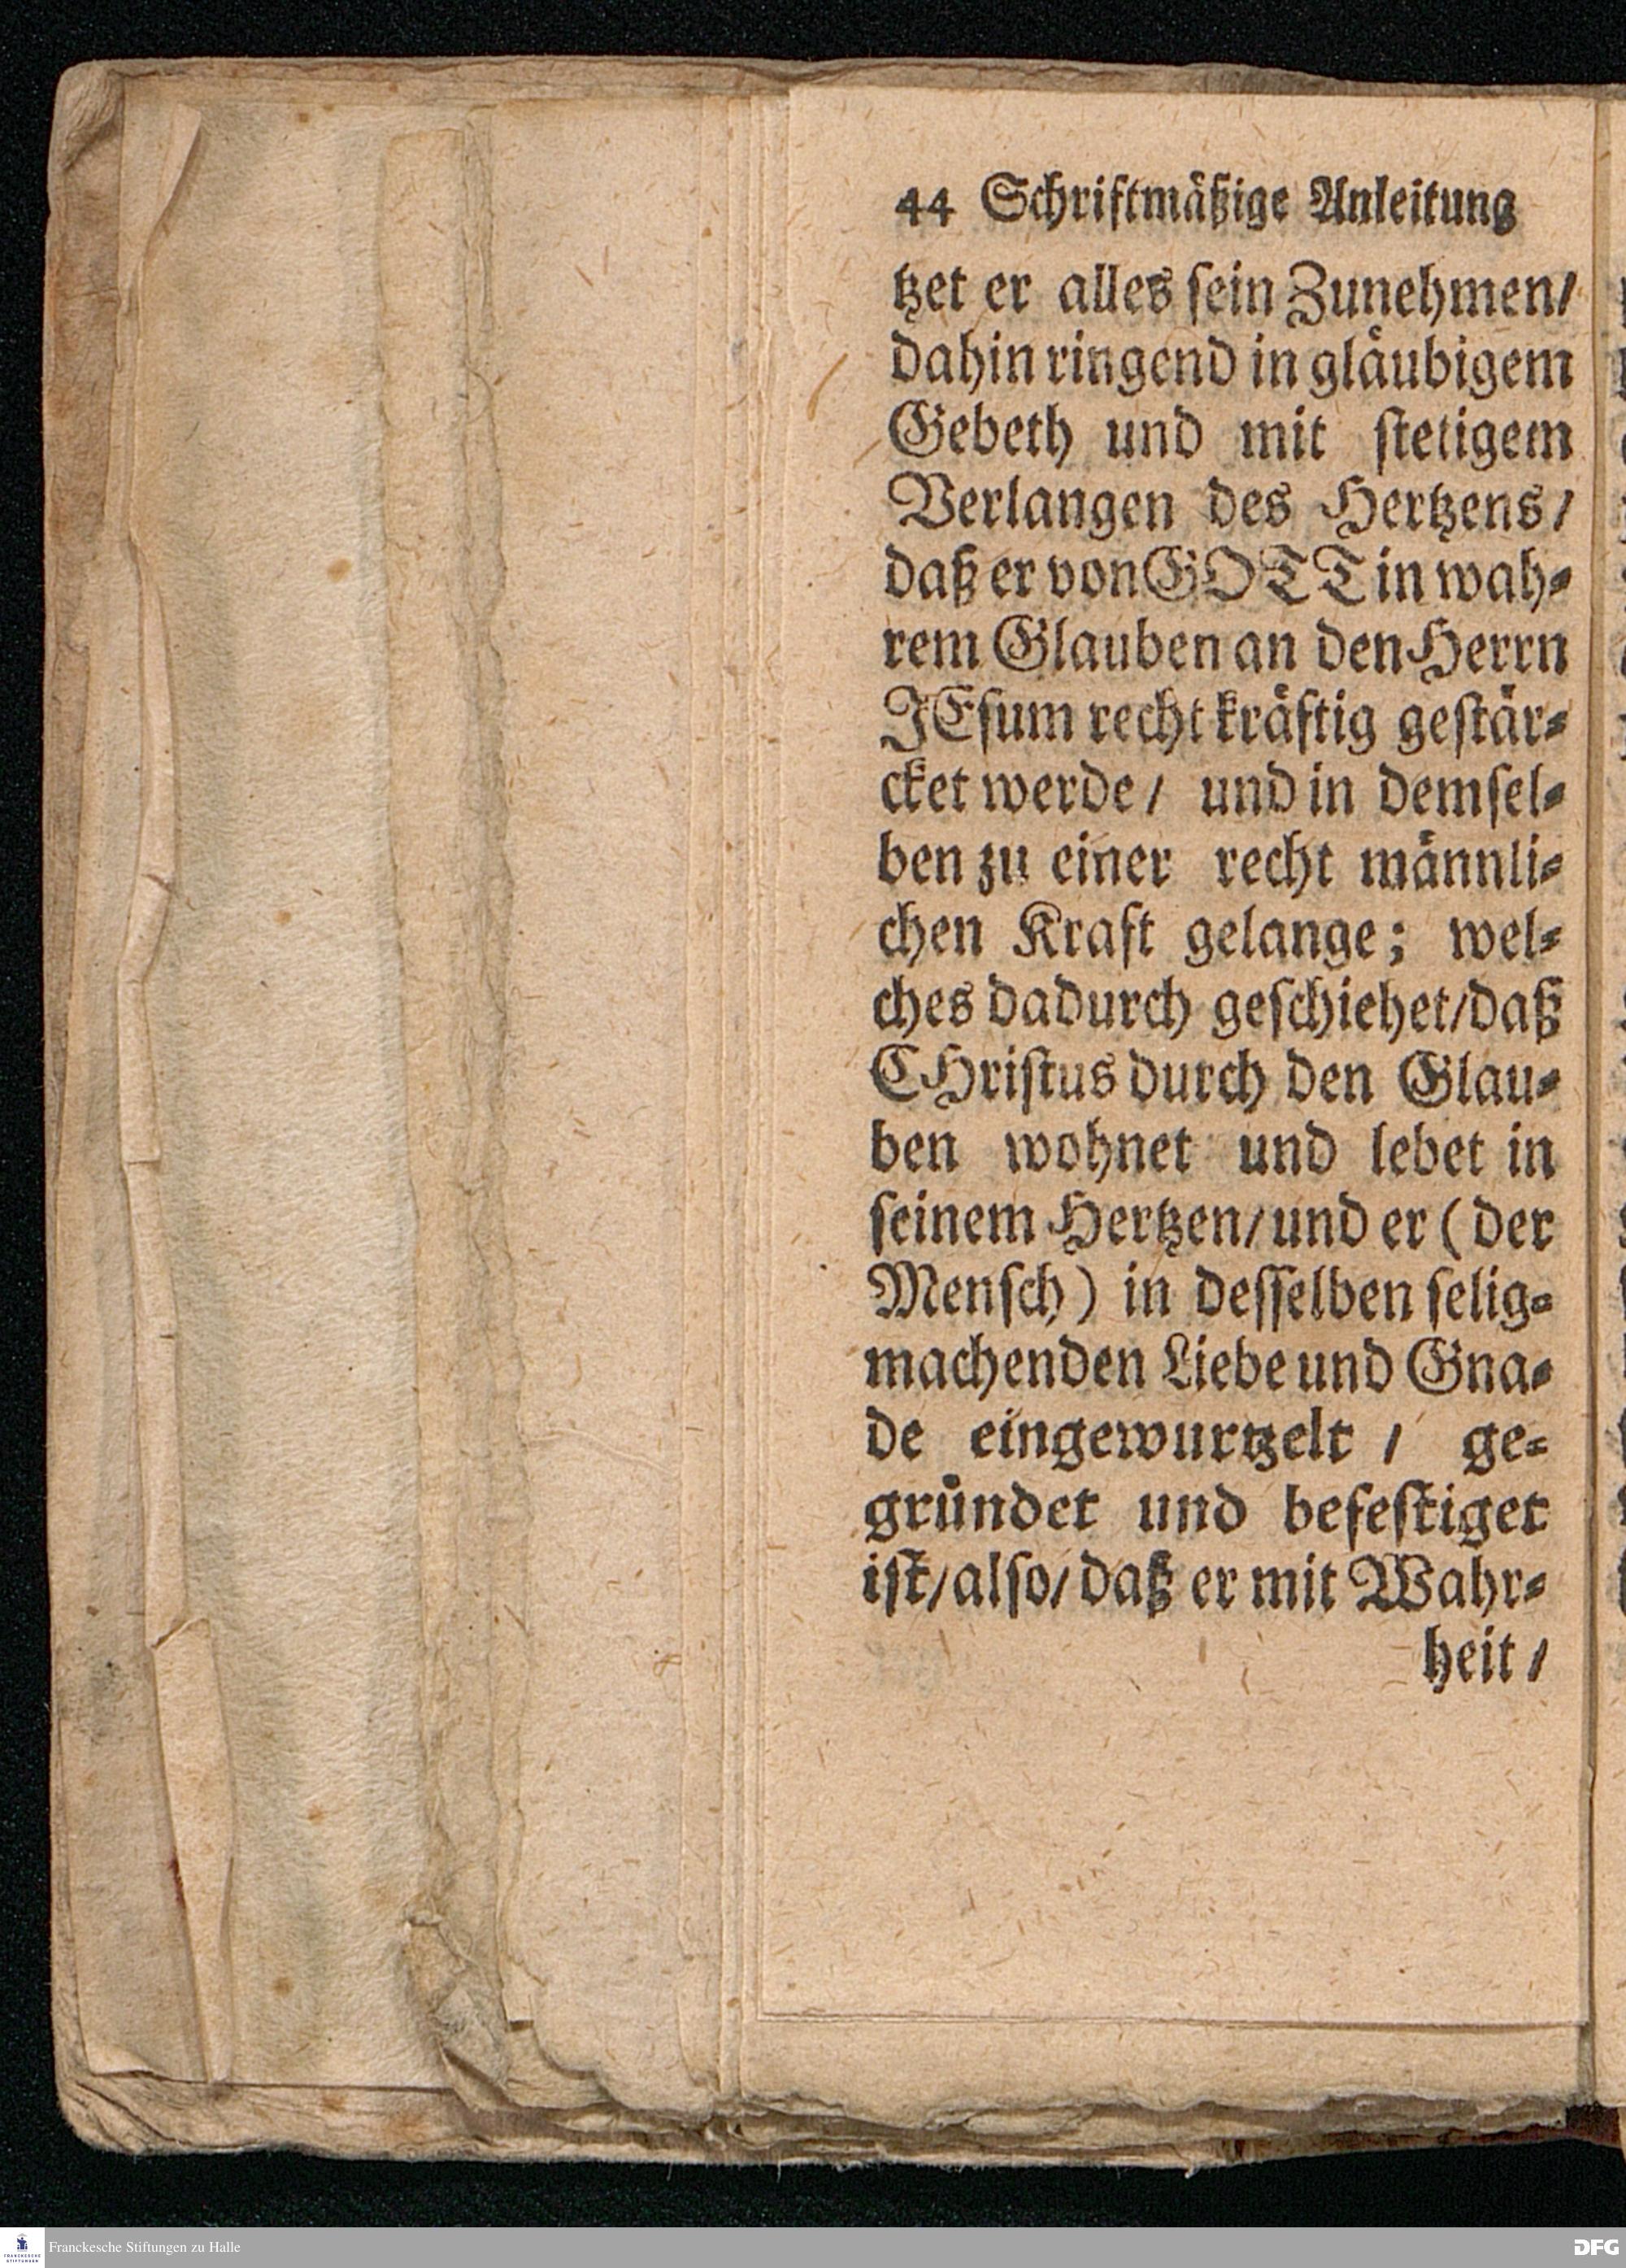 44 Schriftmäßige Anleitung
tzet er alles sein Zunehmen/
dahin ringend in gläubigem
Gebeth und mit stetigem
Verlangen des Hertzens/
daß er von GOTT in wah-
rem Glauben an den Herrn
JEsum recht kräftig gestär-
cket werde/ und in demsel-
ben zu einer recht männli-
chen Kraft gelange; wel-
ches dadurch geschiehet/daß
CHristus durch den Glau-
ben wohnet und lebet in
seinem Hertzen/und er (der
Mensch) in desselben selig-
machenden Liebe und Gna-
de eingewurtzelt / ge-
gründet und befestiget
ist/also/daß er mit Wahr-
heit /
FRANCKESCHE STIFTUNGEN
Franckesche Stiftungen zu Halle
DFG